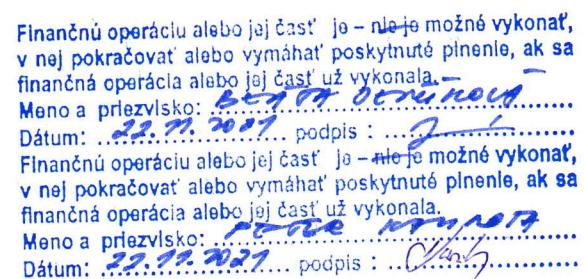 Finančnú operáciu alebo jej časť je – nie je možné vykonať,
v nej pokračovať alebo vymáhať poskytnuté plnenie, ak sa
finančná operácia alebo jej časť už vykonala.
Meno a priezvisko: BEÁTA
Dátum: 22.11.2021 podpis :
Finančnú operáciu alebo jej časť je – nie je možné vykonať,
v nej pokračovať alebo vymáhať poskytnuté plnenie, ak sa
finančná operácia alebo jej časť už vykonala.
Meno a priezvisko: PETER
Dátum: 22.11.2021 podpis :